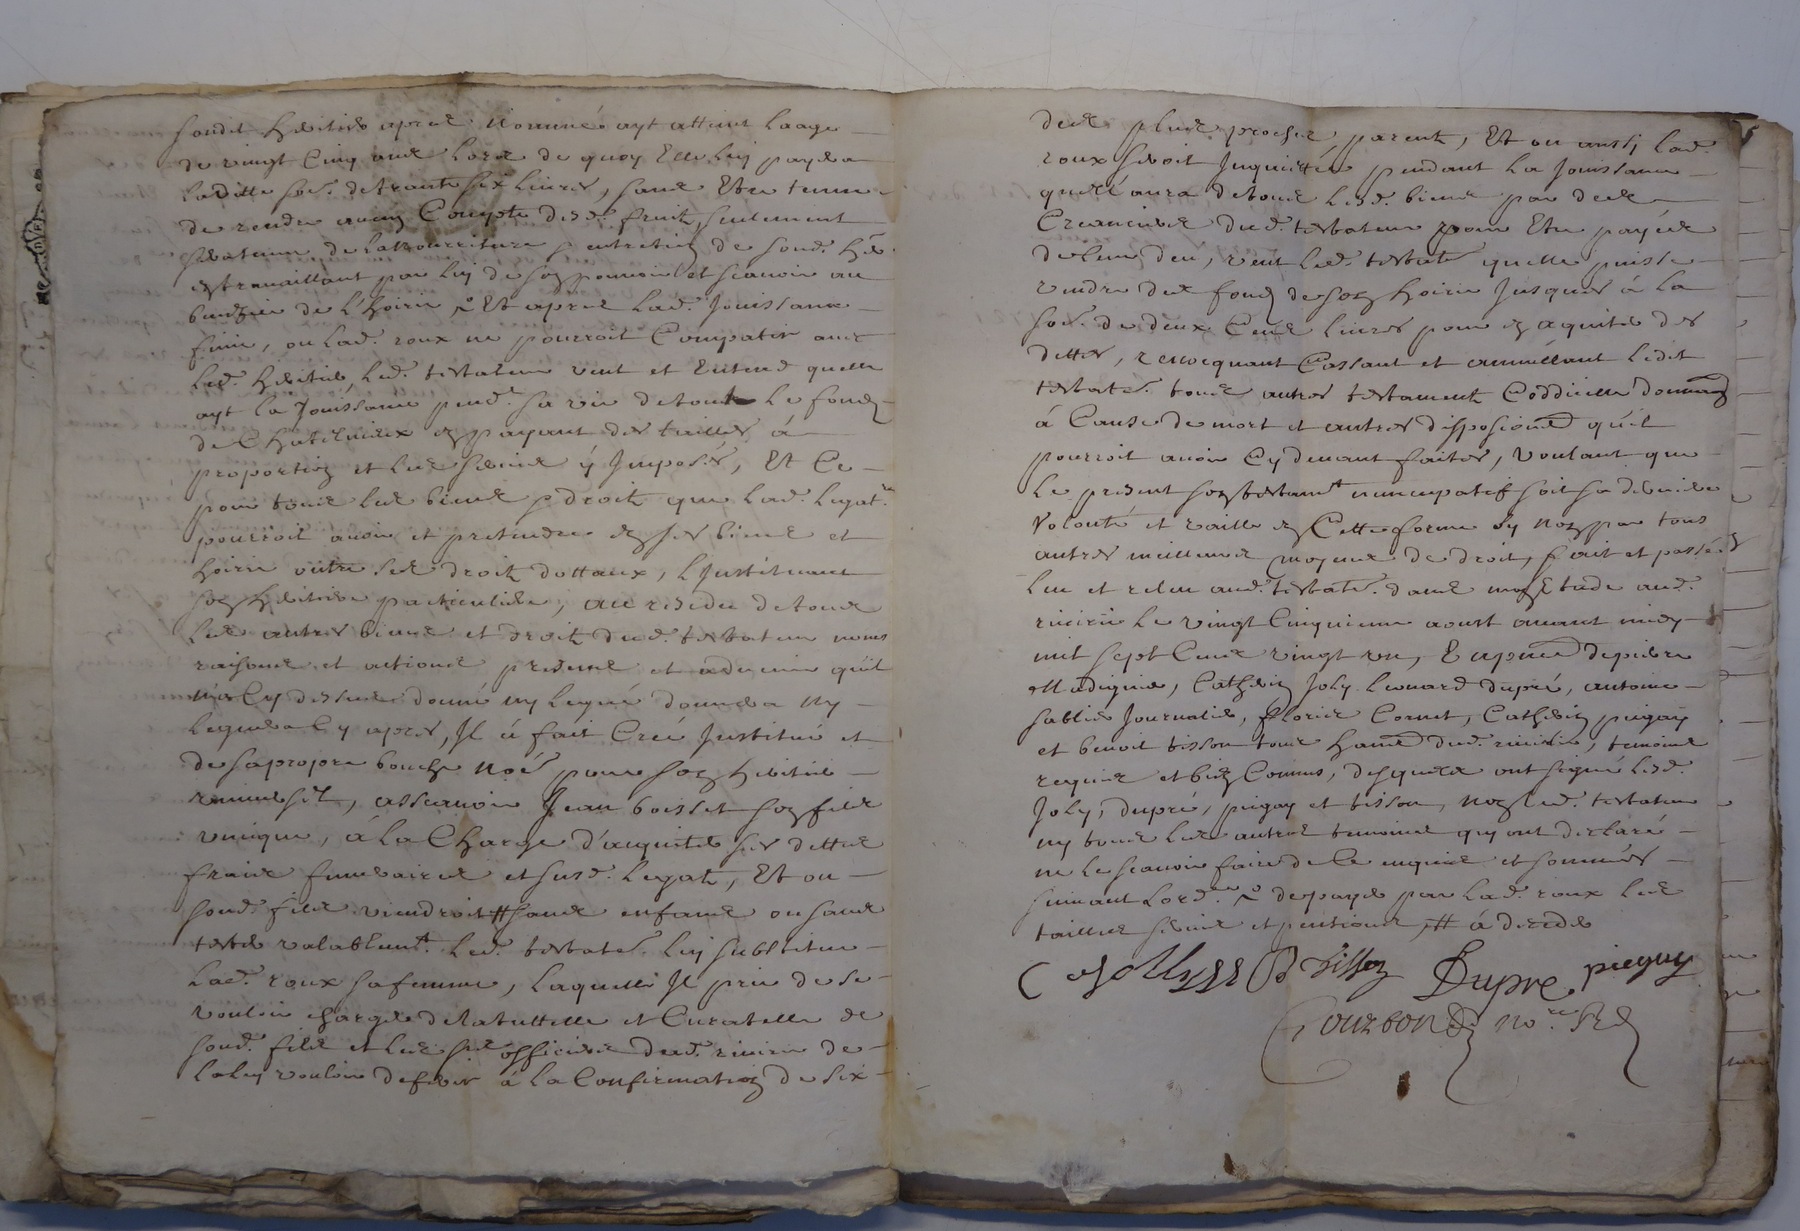 sondit heritier apres nommé ayt attaint laage
de vingt cinq ans lors de quoy elle luy payera
laditte som. de trante six livres, sans etre tenue
de rendre aucun compte desd. fruits, seulement
de la nourriture & entretien de sond. her.
en travaillant par luy de son pouvoir et scavoir au
benefice de l'hoirie & et apres lad. jouissance
finie, ou lad. roux ne pourroit compatir avec
led. heritier, led. testateur veut et entend quelle
ayt la jouissance pend.t sa vie de tout le fonds
de en payant des tailles à
proportion et les servis y imposés, et ce
pour tous les biens & droits que lad. legat.re
pourroit avoir et pretendre en ses biens et
hoirie outre ses droits dottaux, l'instituant
son heritiere particuliere, au residu de tous
les autres biens et droits dud. testateur noms
raisons et actions presens et advenir qu'il
n'a cy dessus donné ny legué donnera ny
leguera cy apres, il à fait créé institué et
de sa propre bouche nommé pour son heritier
universel, asscavoir Jean boisset son fils
unique, à la charge d'acquiter ses dettes
frais funeraires et susd. legats, et ou
sond. fils viendroit sans enfans ou sans
tester valablem.t led. testate.r luy substitue
lad. roux sa femme, laquelle il prie de se
vouloir charger de la tuttelle et curatelle de
sond. fils et les s.rs officiers dud. rivirie de
la luy vouloir deferer à la confirmation de six
des plus proches parents, et ou aussy lad.
roux seroit inquiettée pendant la jouissance
quelle aura de tous lesd. biens par des
creanciers dud. testateur pour etre payés
de leur deu, veut led. testate.r quelle puisse
vendre des fonds de son hoirie jusques à la
som. de deux cens livres pour en aquiter des
dettes, revocquant cassant et annullant ledit
testate.r tous autres testaments coddicilles donnaons
à cause de mort et autres disposions qu'il
pourroit avoir cy devant faites, voulant que
le present son testam.t nuncupatif soit sa derniere
volonté et vaille en cette forme sy non par tous
autres meilleurs moyens de droit, fait et passé
leu et releu aud. testate.r dans mon etude aud.
rivirie le vingt cinquieme aoust avant midy
mil sept cens vingt un, en pnce de pierre
Madignier, Catherin Joly Leonard dupré, antoine
sablier journalier, florie Cornet, Catherin pugay
et benoit tisson tous hants dud. rivirie, temoins
requis et bien connus, desquels ont signé lesd.
Joly, dupré, pugay et tisson, non led. testateur
ny tous les autres temoins qui ont declaré
ne le scavoir faire de ce enquis et sommés
suivant l'ord.ce & de payer par lad. roux les
tailles servis et pensions à
C Jolly B Tisson Dupre piegay
Courbon no.re R.